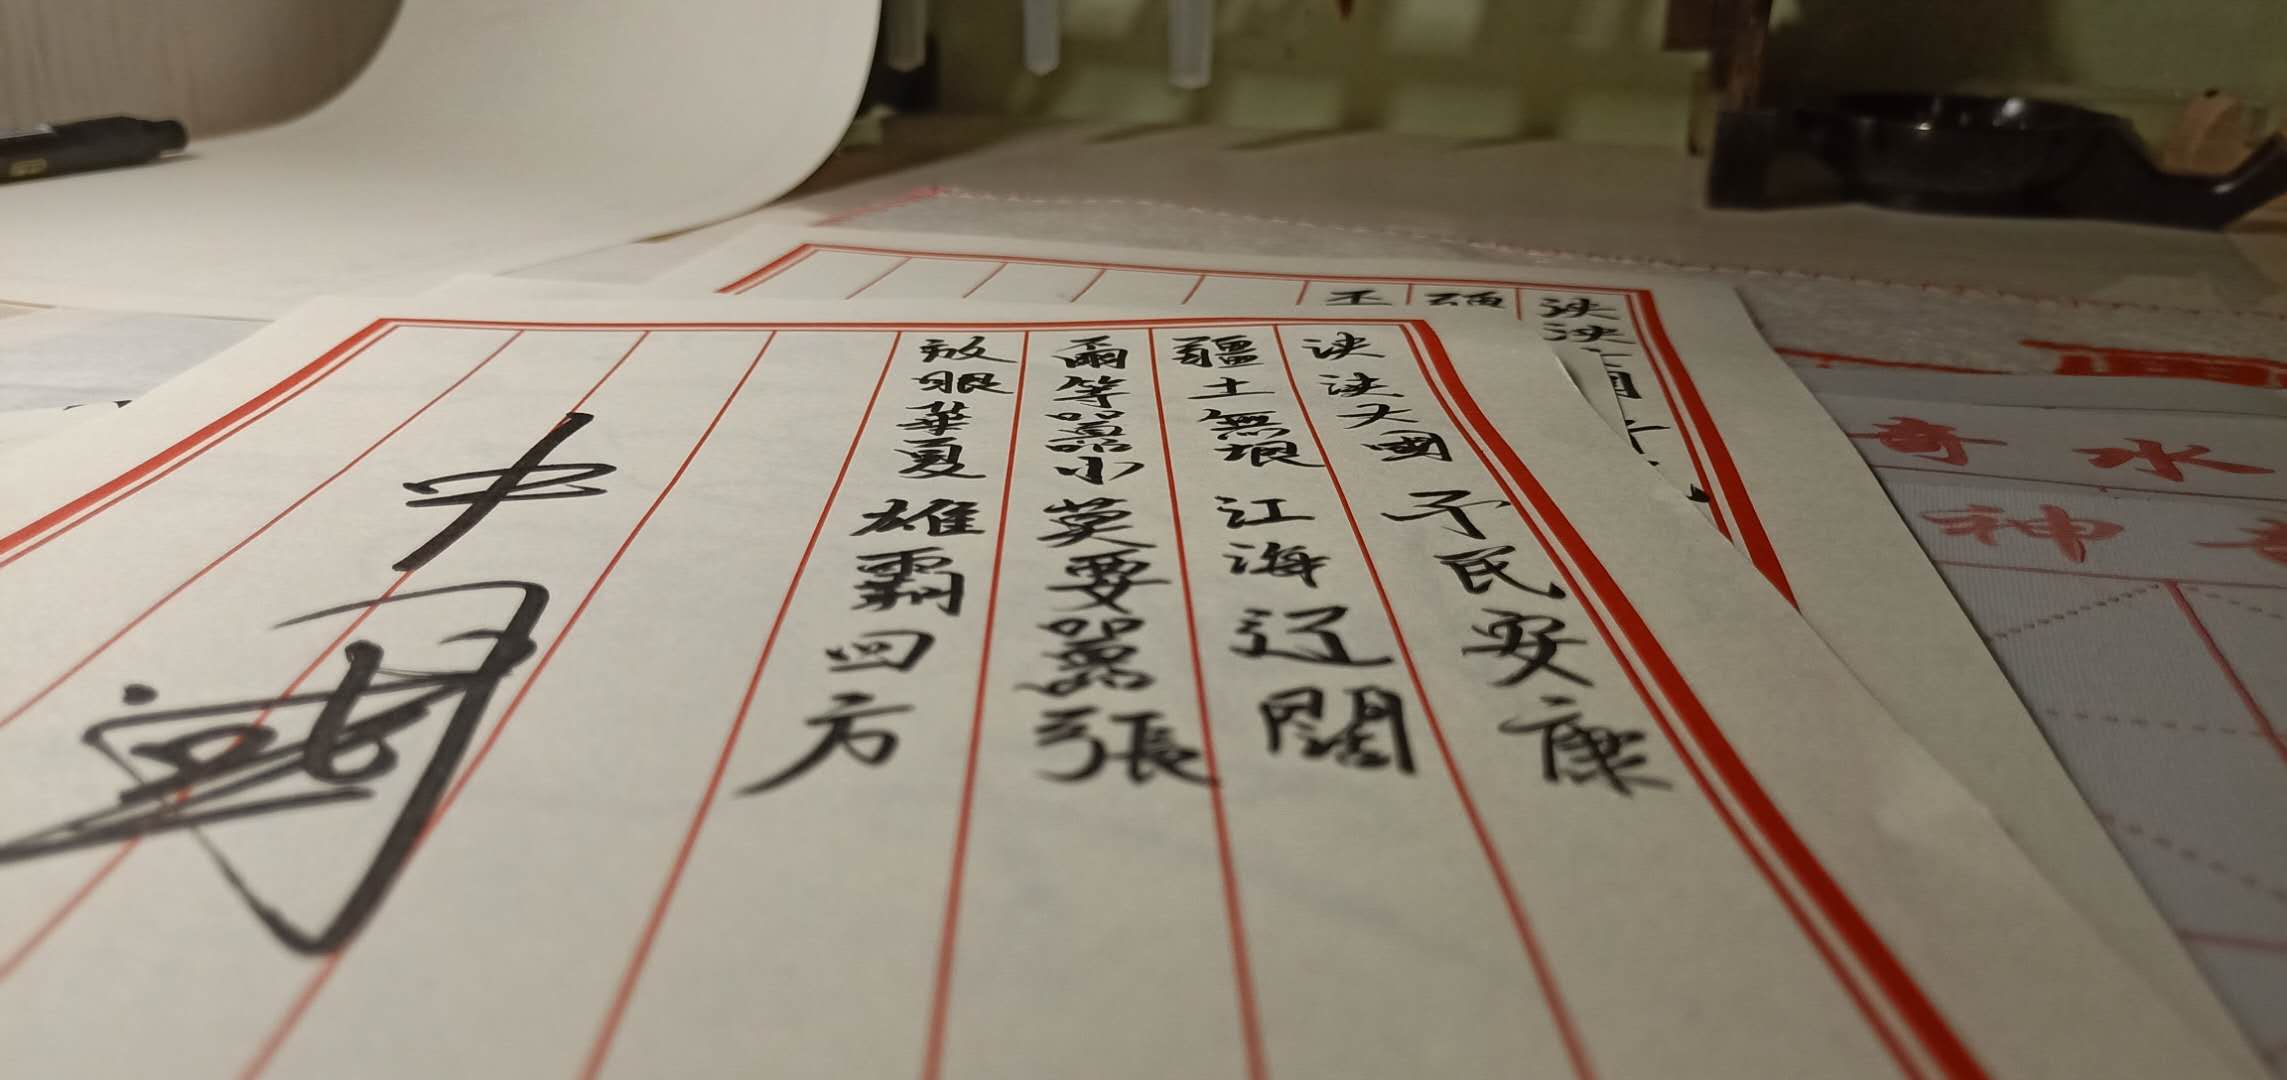 泱泱大國 予民安康
疆土無垠 江海辽闊
爾等嚣小 莫要嚣張
放眼華夏 雄霸四方
中國
泱泱
奇水
神